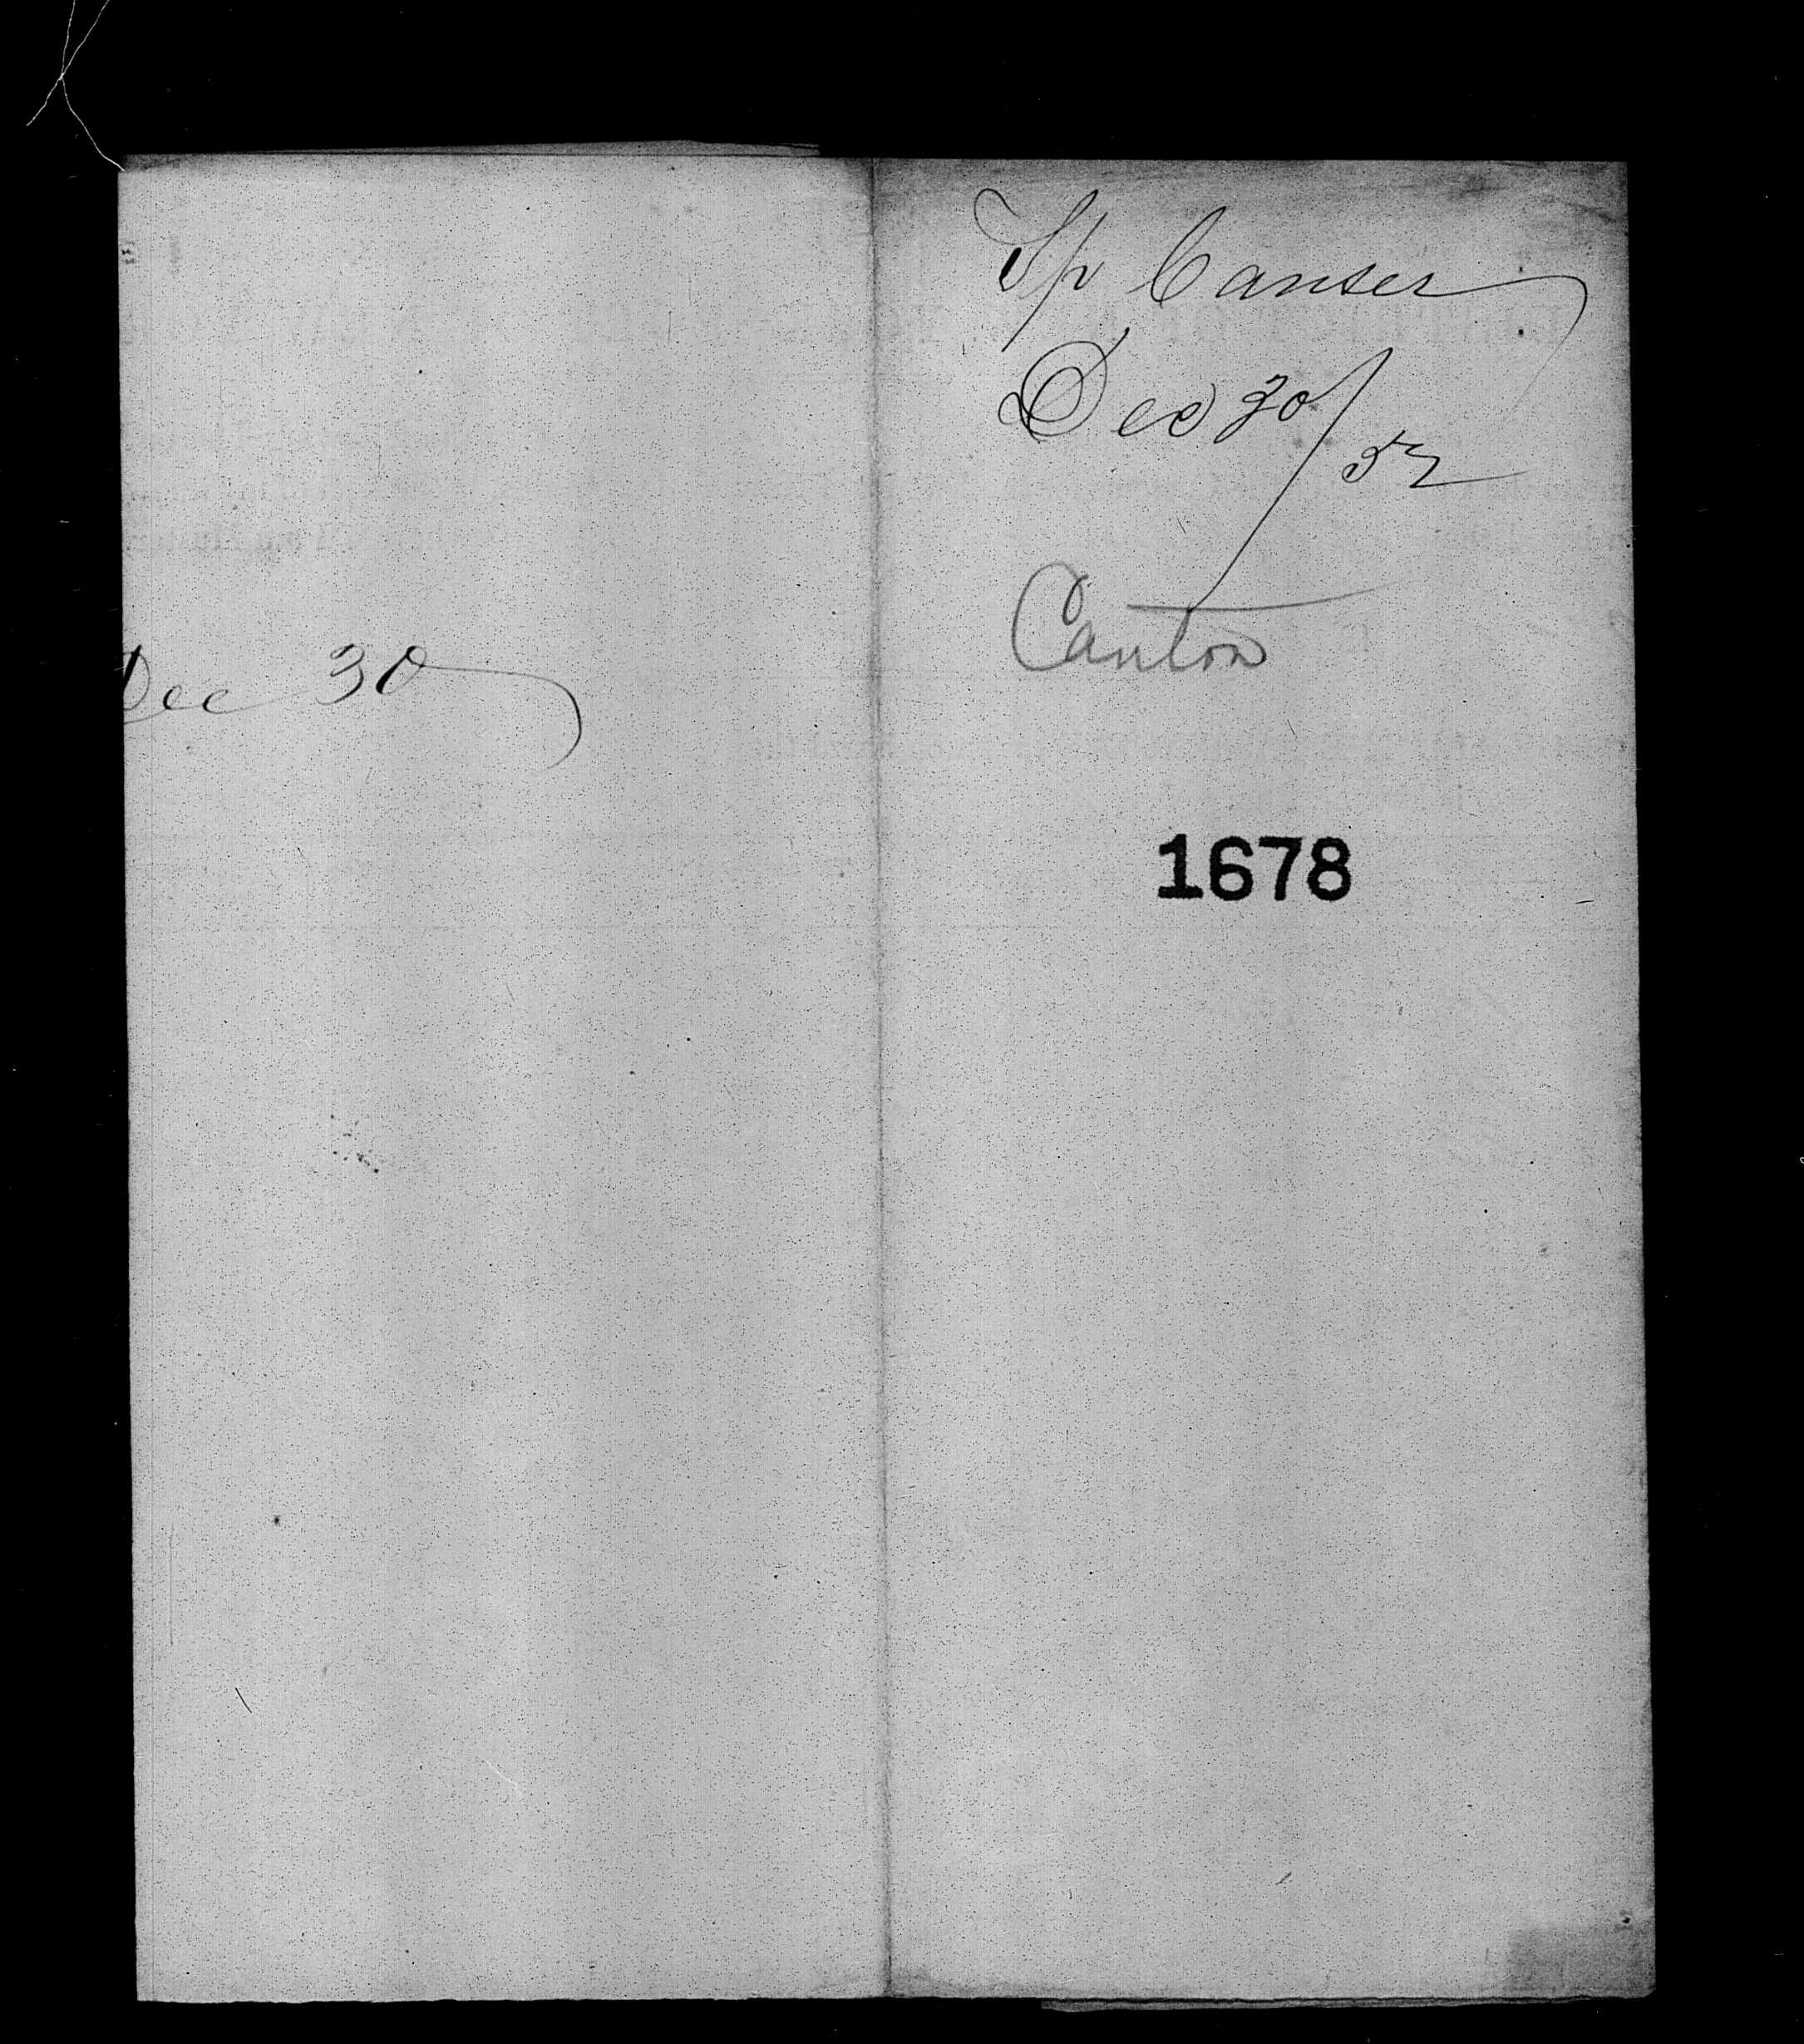 Dec 30
Sp Canser
Dec 30/52
Canton
1678